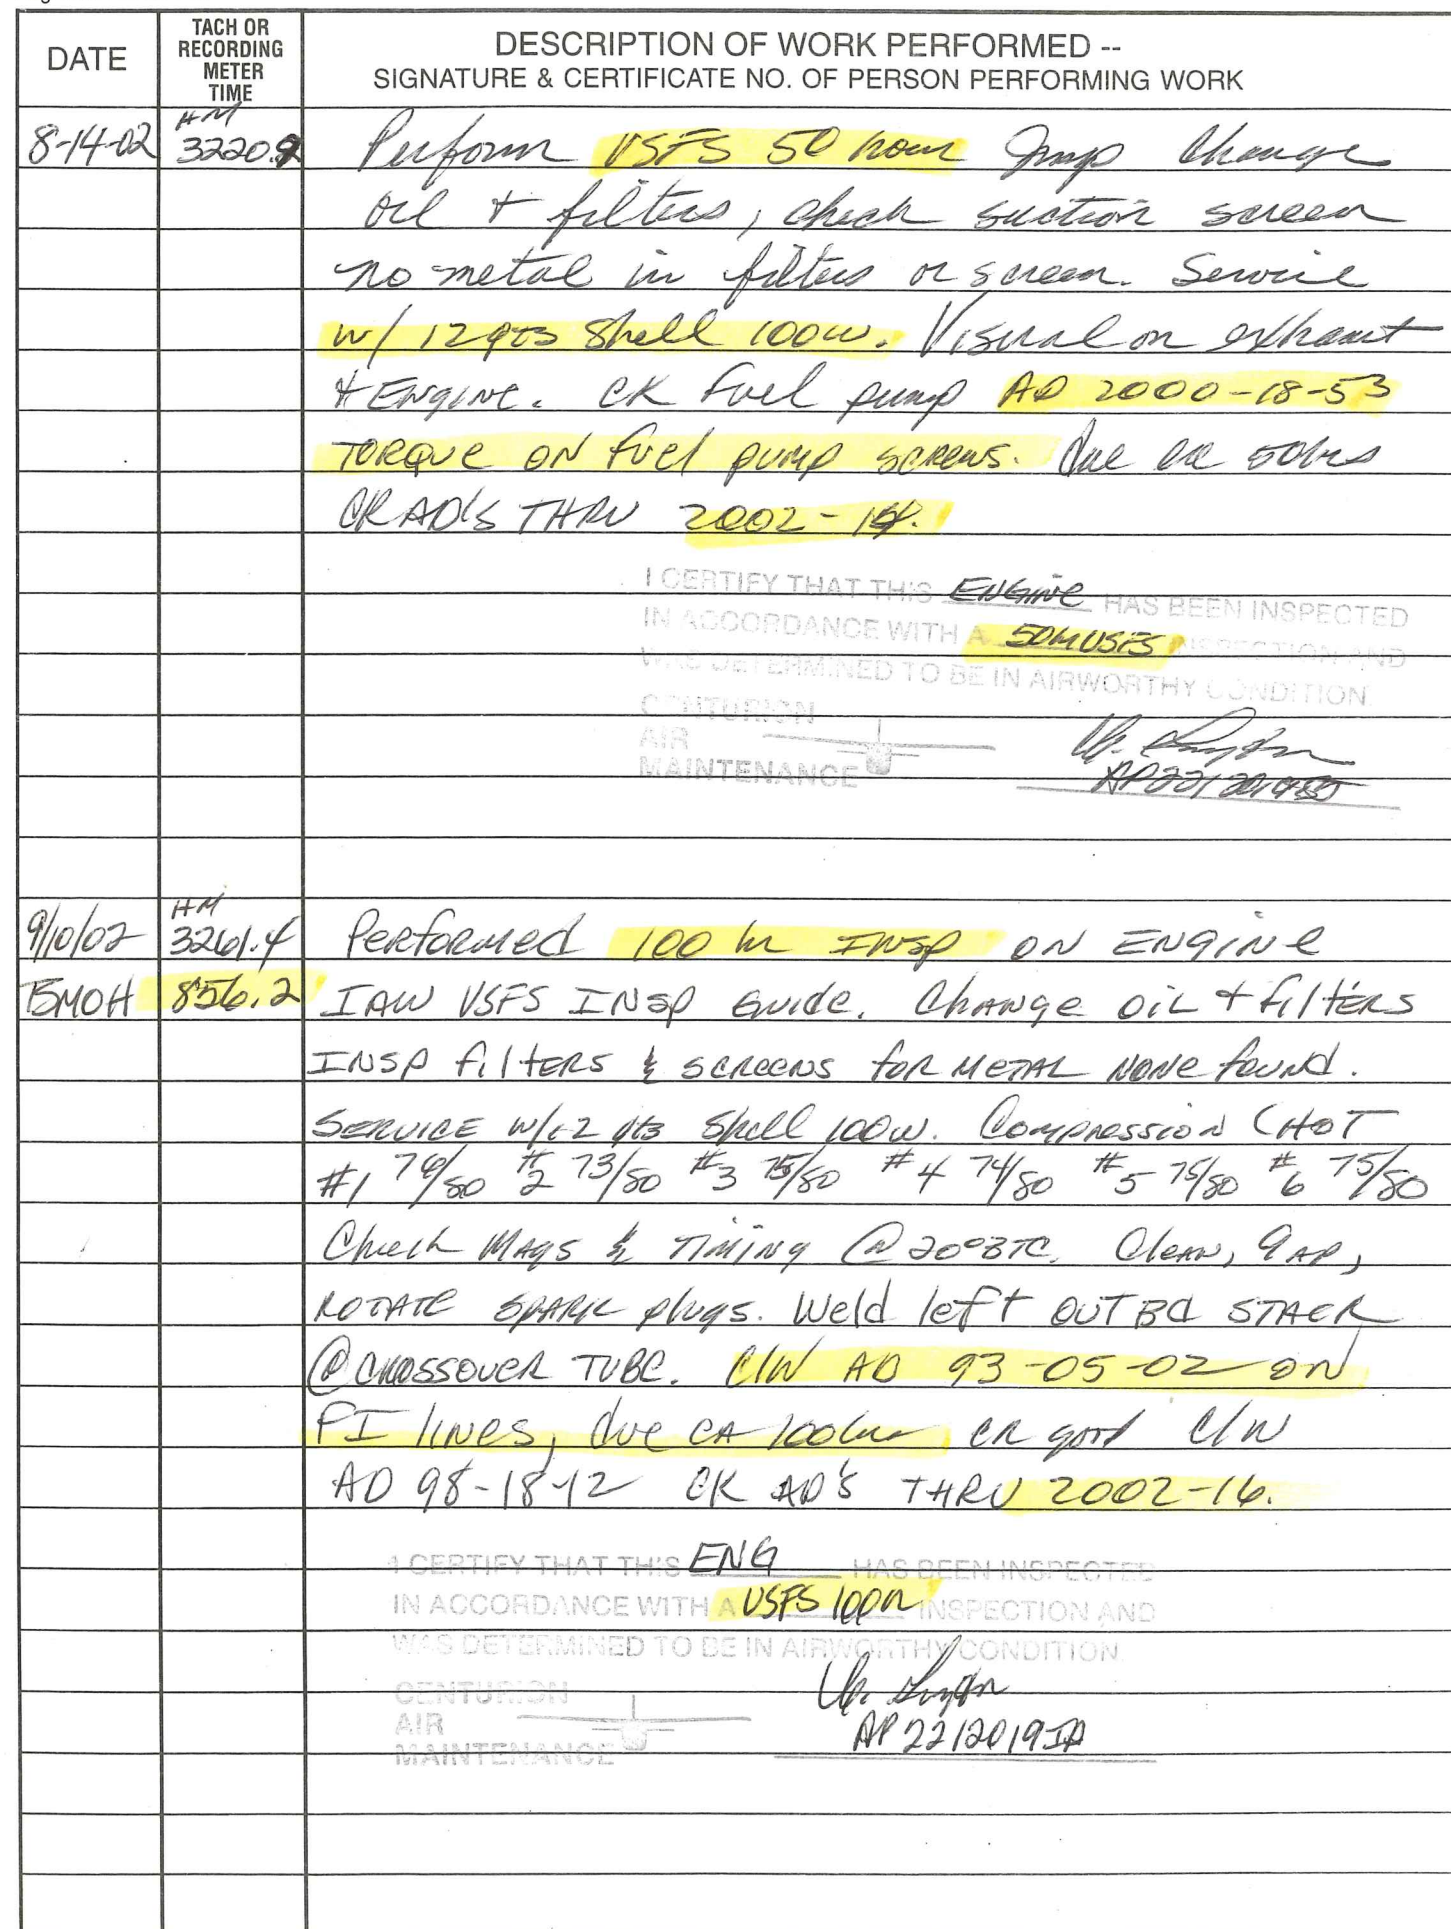 DATE
TACH OR
RECORDING
METER
TIME
DESCRIPTION OF WORK PERFORMED --
SIGNATURE & CERTIFICATE NO. OF PERSON PERFORMING WORK
8-14-02 HM 3220.9 Perform USFS 50 hour Insp Change
oil + filters, check suction screen
no metal in filters or screen. Service
w/ 12 qts Shell 100W. Visual on exhaust
+ Engine. CK Fuel pump AD 2000-18-53
TORQUE ON Fuel pump SCREWS. due ea 50hrs
CK AD'S THRU 2002-
I CERTIFY THAT THIS ENGINE HAS BEEN INSPECTED
IN ACCORDANCE WITH A 50H USFS INSPECTION AND
WAS DETERMINED TO BE IN AIRWORTHY CONDITION.
CENTURION
AIR
MAINTENANCE
9/10/02 HM 3261.4 Performed 100 hr INSP ON ENGINE
TSMOH 856.2 IAW USFS INSP GUIDE. Change OIL + filters
INSP filters & SCREENS for METAL NONE found.
SERVICE w/12 qts Shell 100W. Compression (HOT
#1 76/80 #2 73/80 #3 75/80 #4 74/80 #5 75/80 #6 75/80
Check MAGS & TIMING @ 20° BTC. Clean, GAP,
ROTATE SPARK plugs. Weld left OUTBD STACK
@ CROSSOVER TUBE. C/W AD 93-05-02 ON
FI lines, due EA 100hr CK good C/W
AD 98-18-12 CK AD'S THRU 2002-16.
I CERTIFY THAT THIS ENG HAS BEEN INSPECTED
IN ACCORDANCE WITH A USFS 100H INSPECTION AND
WAS DETERMINED TO BE IN AIRWORTHY CONDITION
CENTURION
AIR
MAINTENANCE
AP 2212019IA